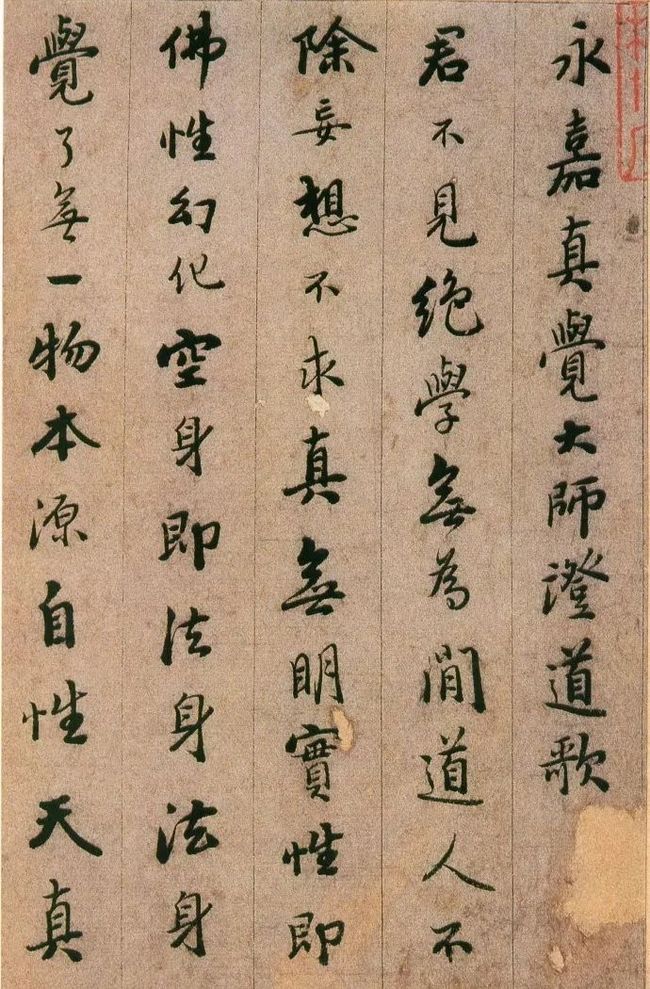 永嘉真覺大師澄道歌
君不見絶學無為閒道人不
除妄想不求真無明實性即
佛性幻化空身即法身法身
覺了無一物本源自性天真